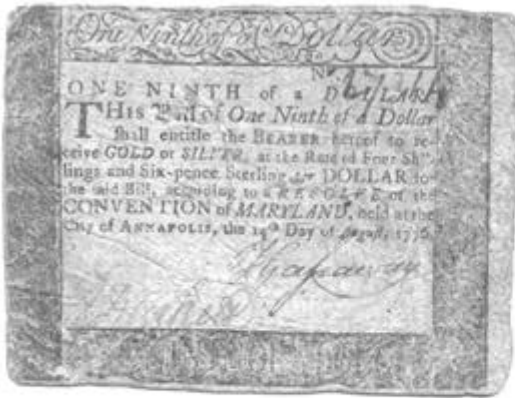 One Ninth of a Dollar
No
ONE NINTH of a DOLLAR
THIS Bill of One Ninth of a Dollar
shall entitle the BEARER hereof to re-
ceive GOLD or SILVER, at the Rate of Four Shil-
lings and Six-pence Sterling per DOLLAR for
the said Bill, according to a RESOLVE of the
CONVENTION of MARYLAND, held at the
City of ANNAPOLIS, the 14th Day of August, 1776.